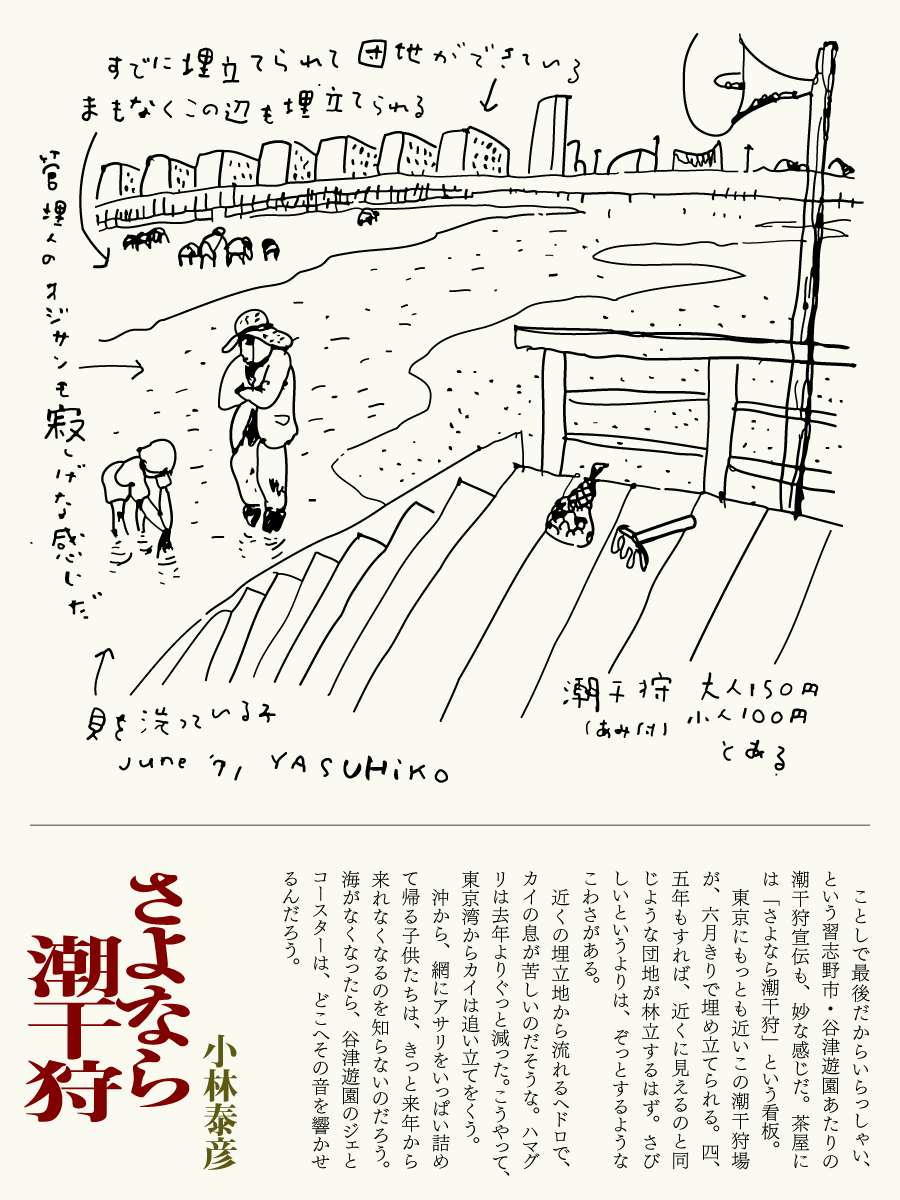 すでに埋立てられて団地ができている
まもなくこの辺も埋立てられる
管理人のオジサンも寂しげな感じだ
貝を洗っている子
June '71 YASUHiKO
潮干狩 大人150円
(あみ付) 小人100円
とある
さよなら
潮干狩
小林泰彦
ことしで最後だからいらっしゃい、
という習志野市・谷津遊園あたりの
潮干狩宣伝も、妙な感じだ。茶屋に
は「さよなら潮干狩」という看板。
東京にもっとも近いこの潮干狩場
が、六月きりで埋め立てられる。四、
五年もすれば、近くに見えるのと同
じような団地が林立するはず。さび
しいというよりは、ぞっとするような
こわさがある。
近くの埋立地から流れるヘドロで、
カイの息が苦しいのだそうな。ハマグ
リは去年よりぐっと減った。こうやって、
東京湾からカイは追い立てをくう。
沖から、網にアサリをいっぱい詰め
て帰る子供たちは、きっと来年から
来れなくなるのを知らないのだろう。
海がなくなったら、谷津遊園のジェと
コースターは、どこへその音を響かせ
るんだろう。